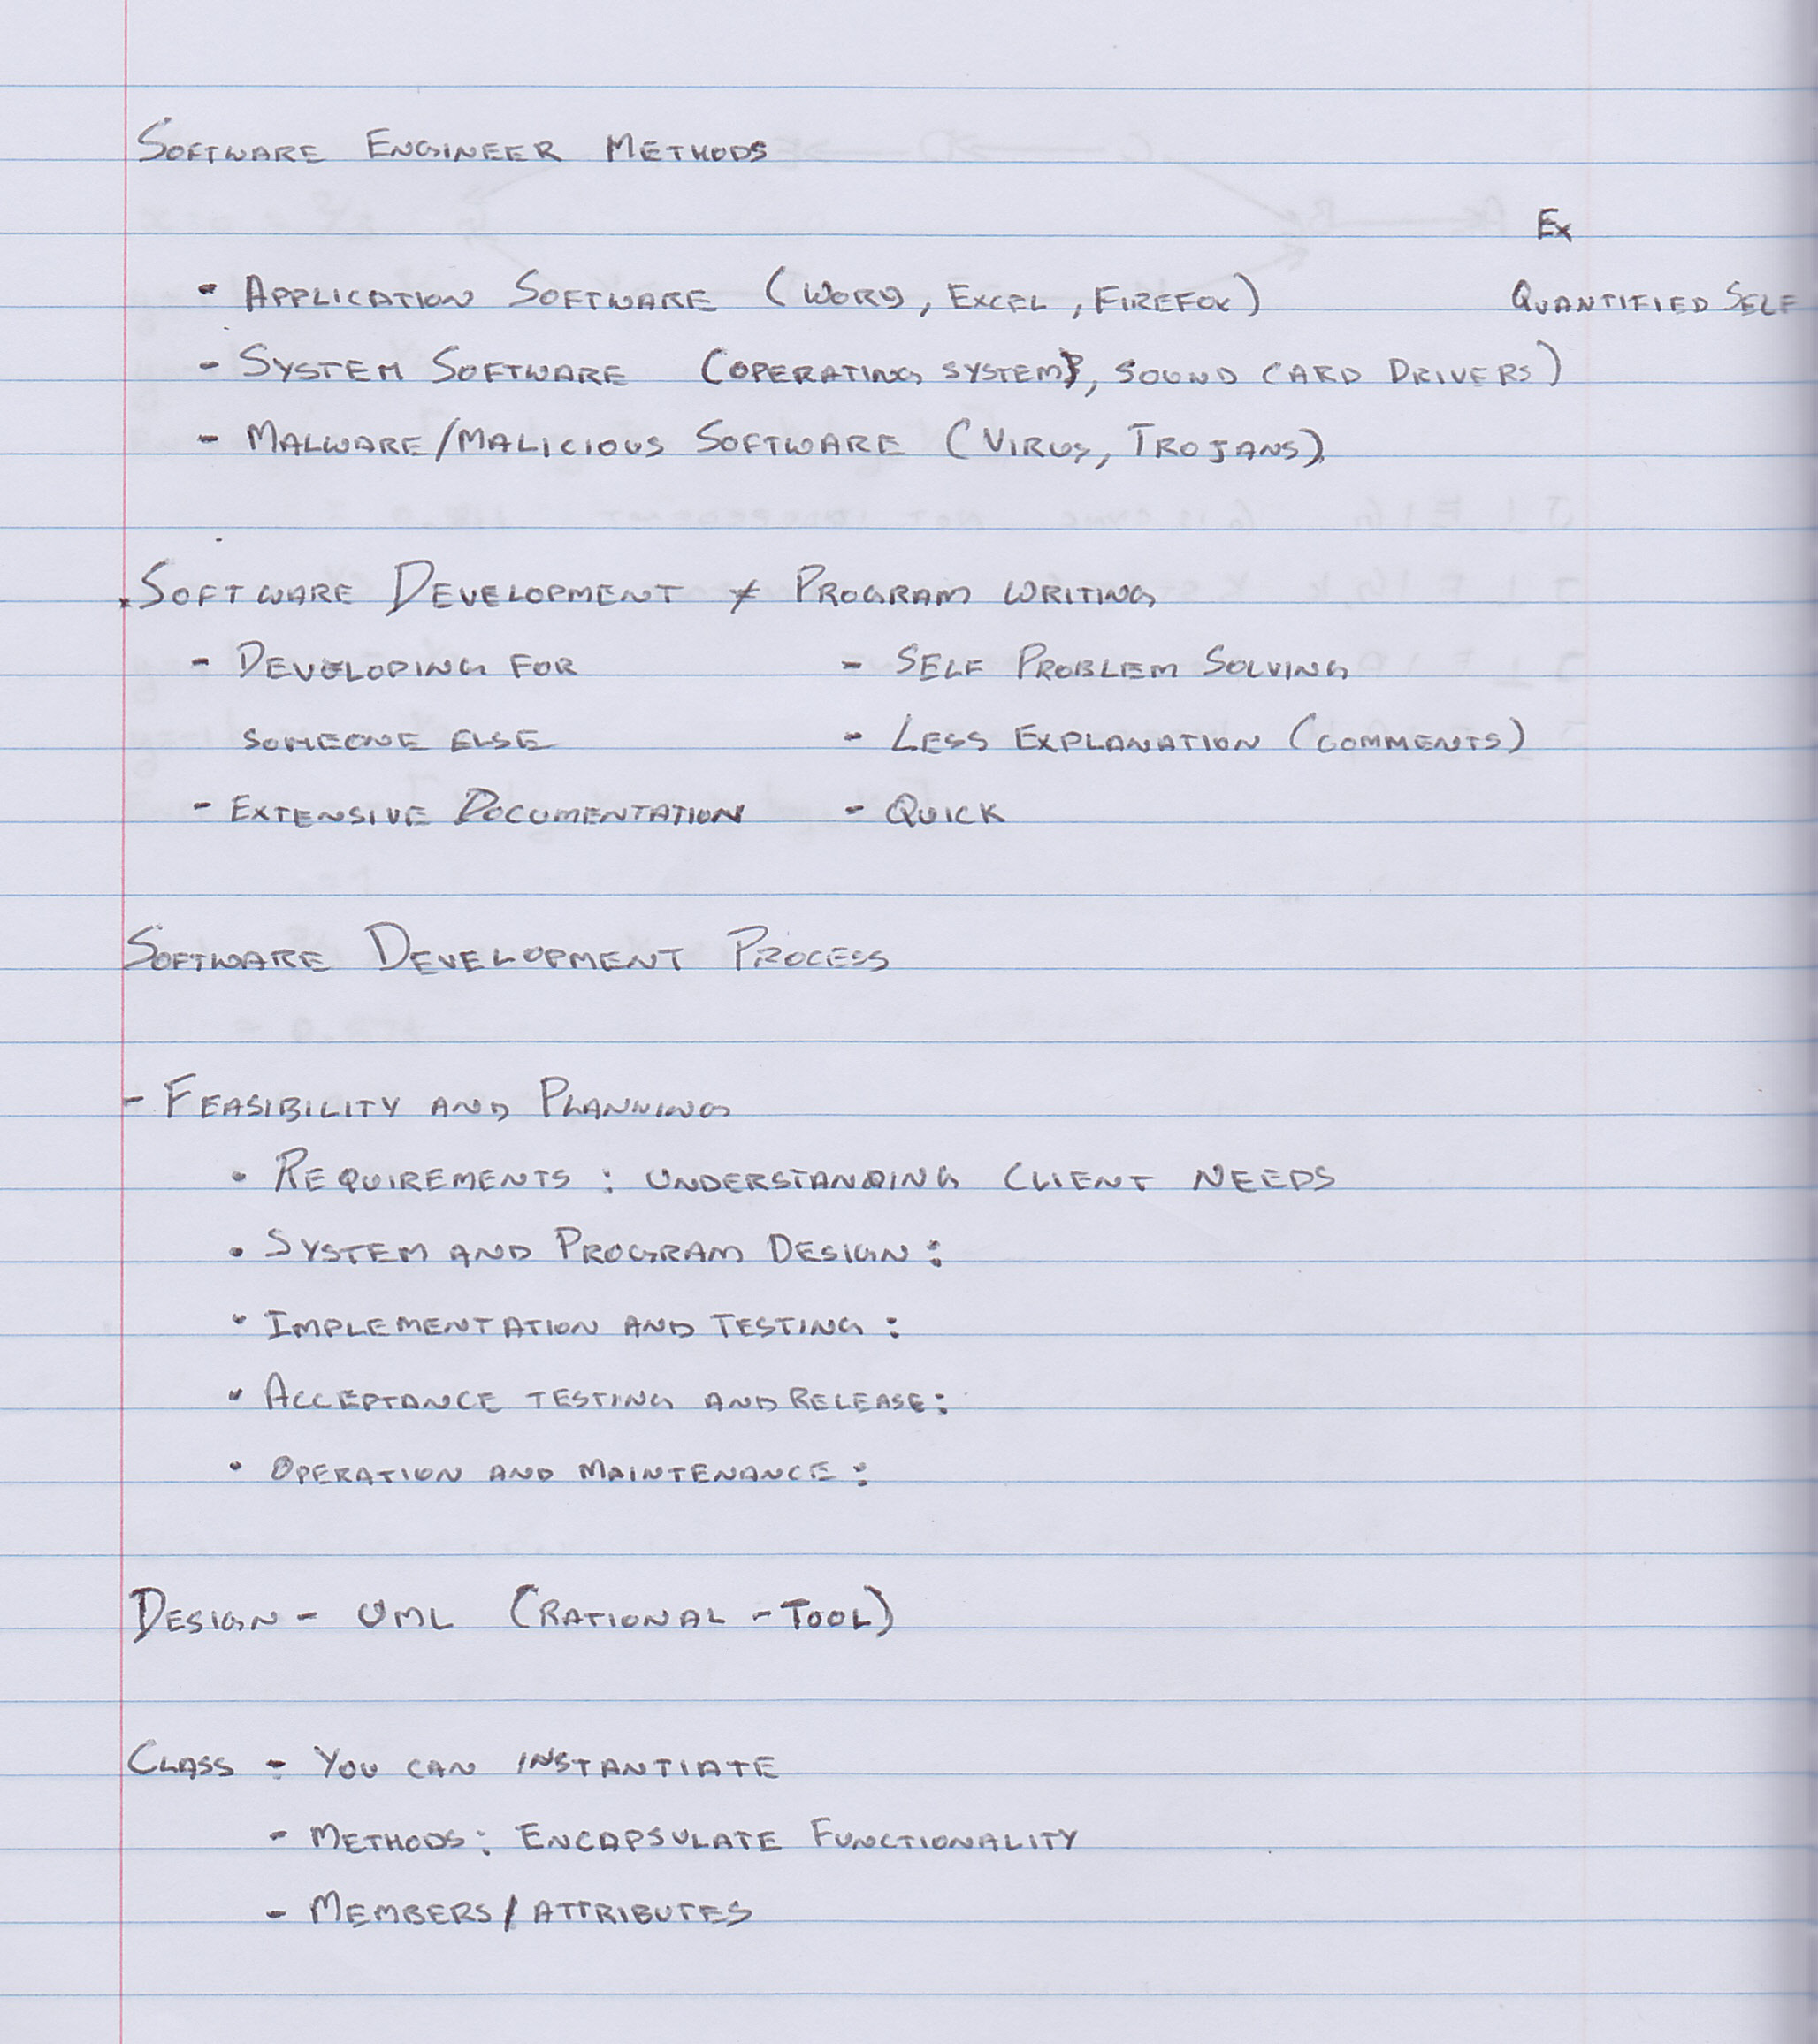 SOFTWARE ENGINEER METHODS
Ex
- APPLICATION SOFTWARE (WORD, EXCEL, FIREFOX)
QUANTIFIED SELF
- SYSTEM SOFTWARE (OPERATING SYSTEMS, SOUND CARD DRIVERS)
- MALWARE/MALICIOUS SOFTWARE (VIRUS, TROJANS)
. SOFTWARE DEVELOPMENT ≠ PROGRAM WRITING
- DEVELOPING FOR - SELF PROBLEM SOLVING
SOMEONE ELSE - LESS EXPLANATION (COMMENTS)
- EXTENSIVE DOCUMENTATION - QUICK
SOFTWARE DEVELOPMENT PROCESS
- FEASIBILITY AND PLANNING
• REQUIREMENTS: UNDERSTANDING CLIENT NEEDS
• SYSTEM AND PROGRAM DESIGN:
• IMPLEMENTATION AND TESTING:
• ACCEPTANCE TESTING AND RELEASE:
• OPERATION AND MAINTENANCE:
DESIGN - UML (RATIONAL - TOOL)
CLASS - YOU CAN INSTANTIATE
- METHODS: ENCAPSULATE FUNCTIONALITY
- MEMBERS/ATTRIBUTES